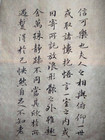 信可樂也夫人之相與俯仰一世
或取諸懷抱悟言一室之内或
因寄所託放浪形骸之外雖趣
舍萬殊靜躁不同當其欣於所
遇暫得於己快然自足不知老